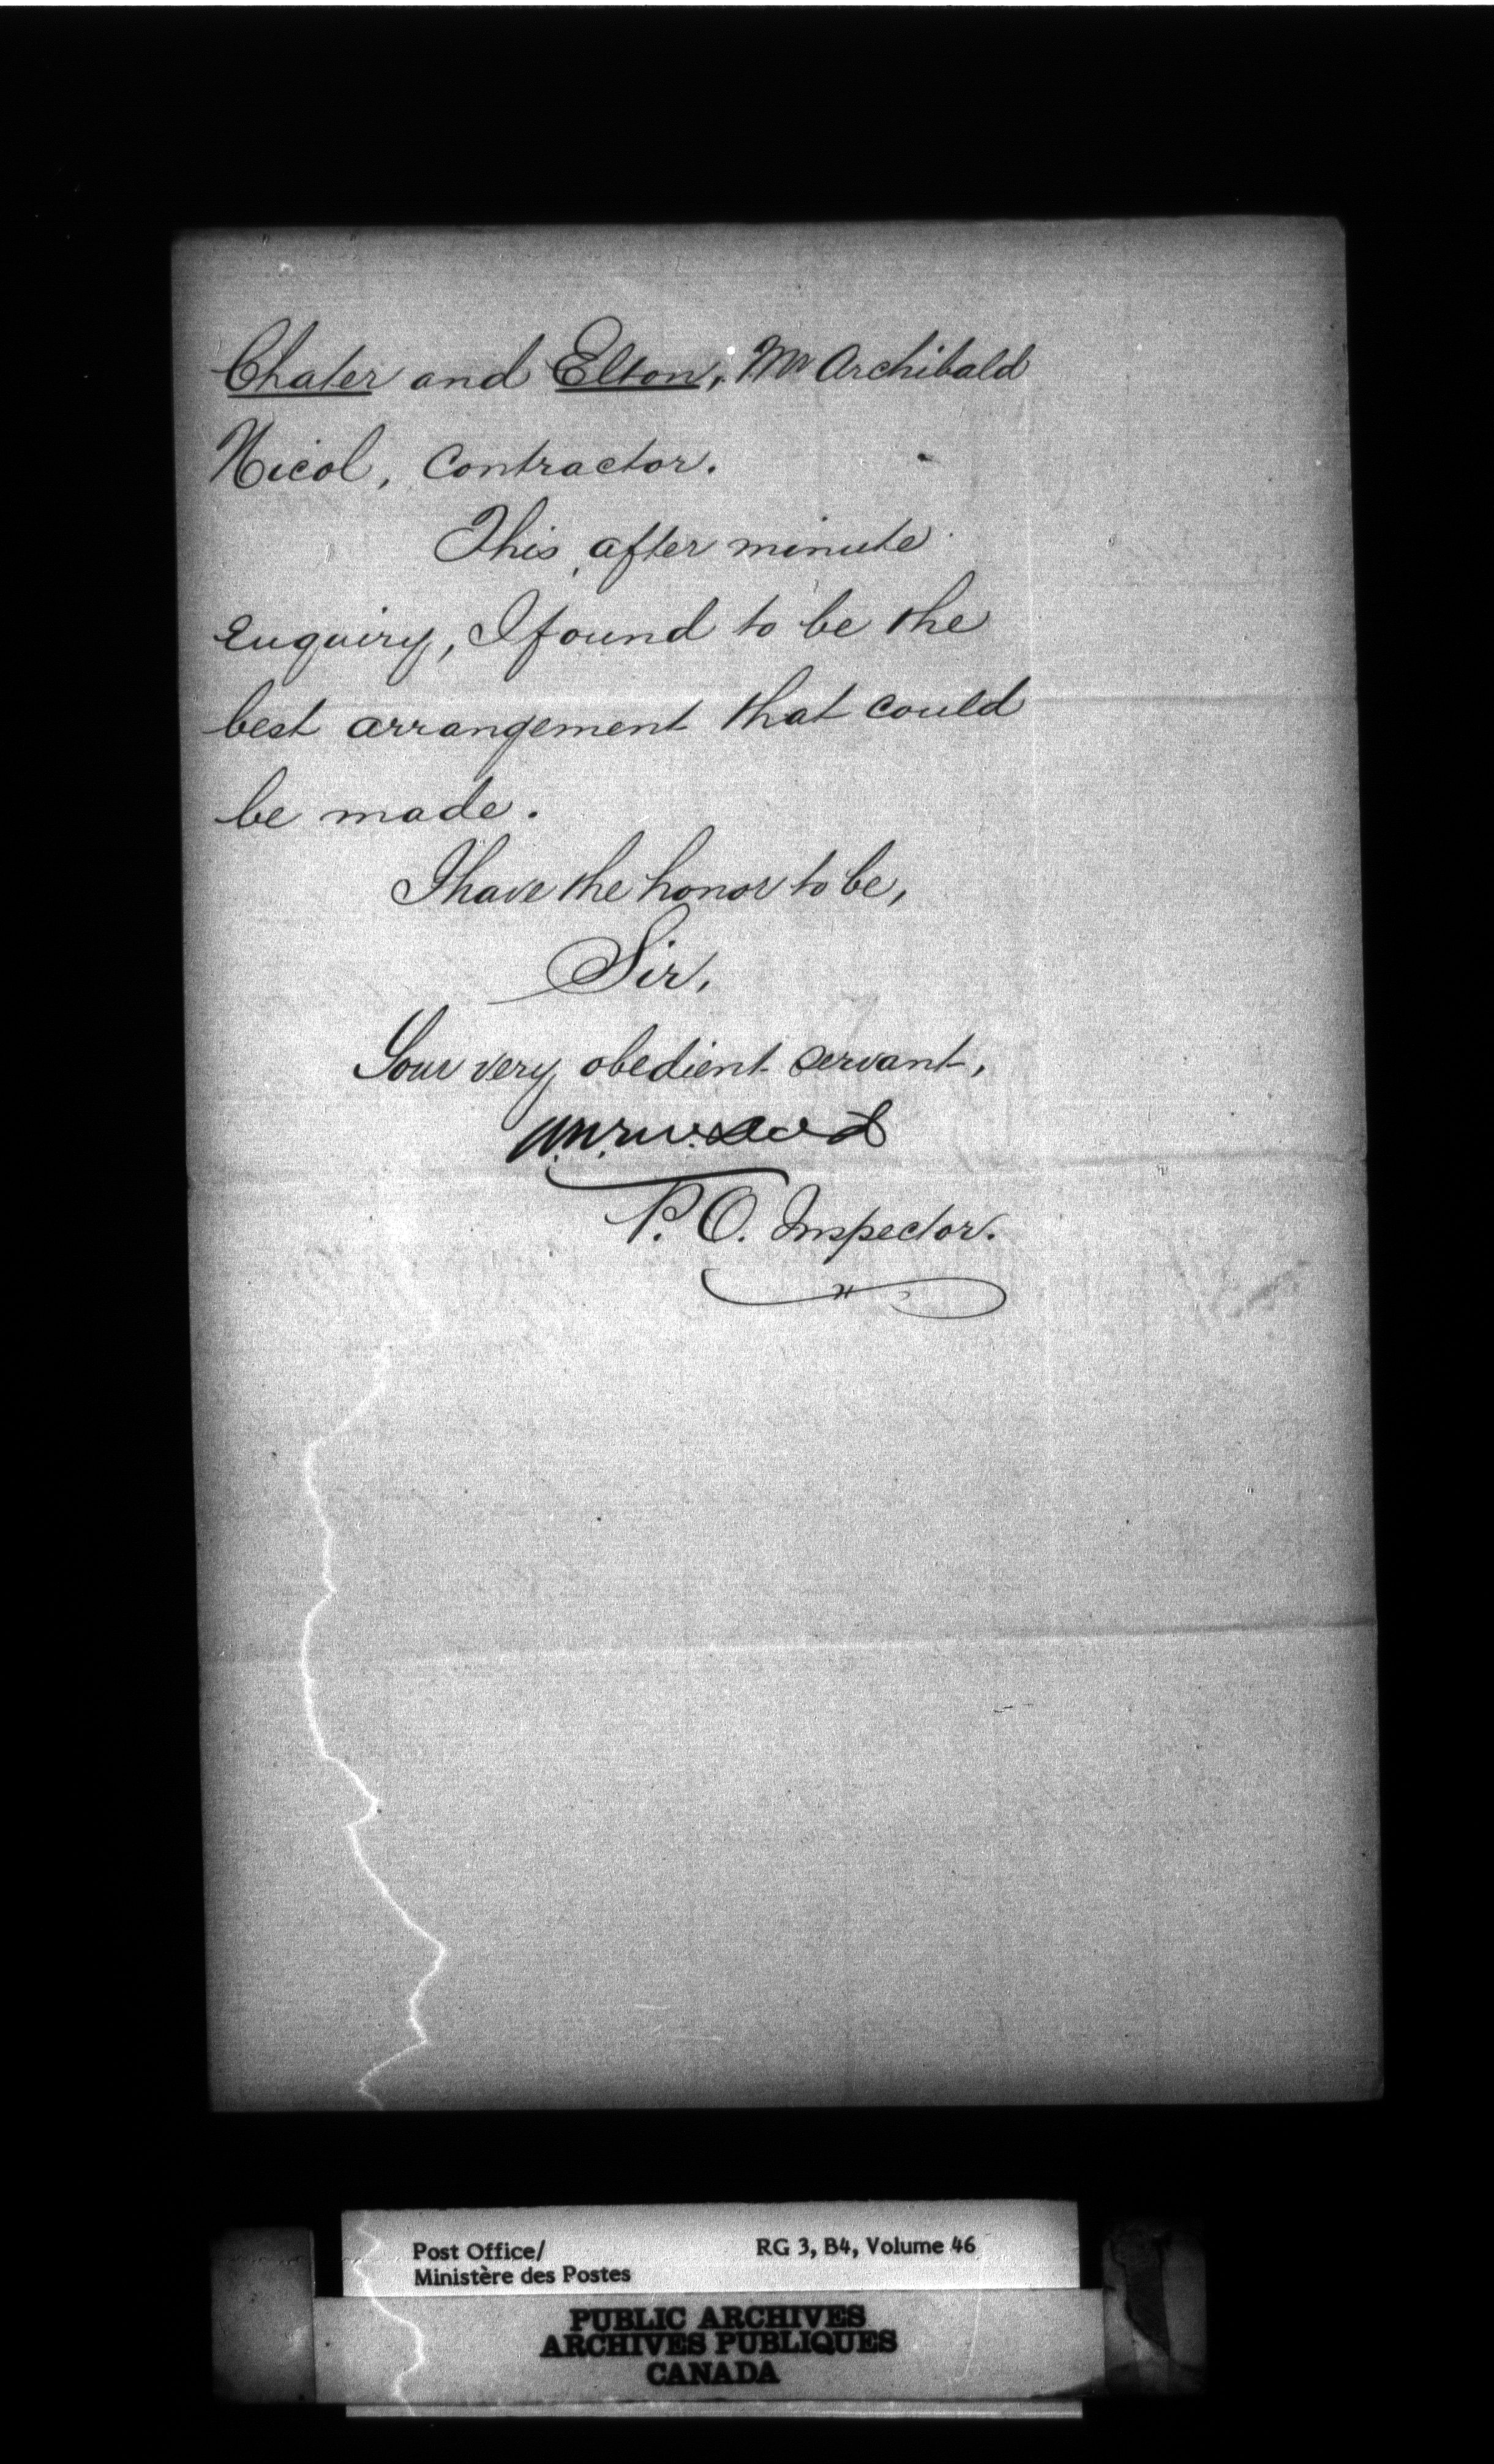 Chater and Elton, Mr Archibald
Nicol, Contractor.
This, after minute
Enquiry, I found to be the
best arrangement that could
be made.
I have the honor to be,
Sir,
Your very obedient servant,
P. O. Inspector.
Post Office/ RG 3, B4, Volume 46
Ministère des Postes
PUBLIC ARCHIVES
ARCHIVES PUBLIQUES
CANADA